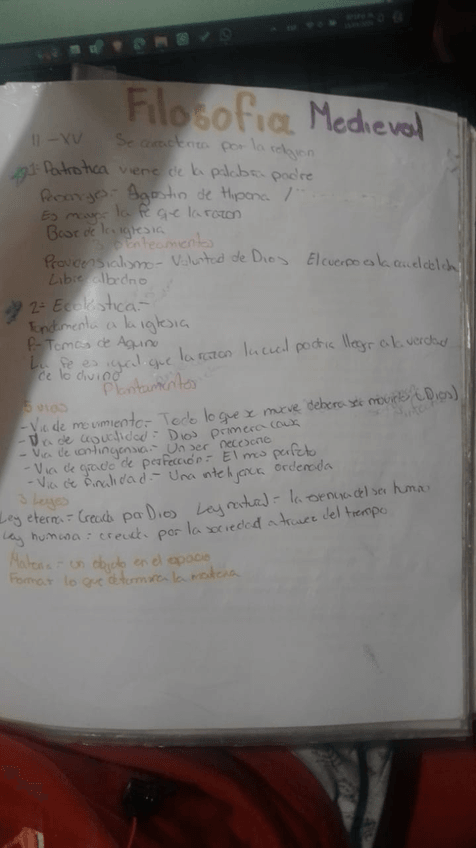 Filosofia Medieval
II - XV Se caracteriza por la religion
1- Patrotica viene de la palabra padre
Agustin de Hipona /
Es mayor la fe que la razon
Base de la iglesia
3 planteamientos
Providensialismo - Voluntad de Dios El cuerpo es la carcel del
Libre albedrio
2= Ecolastica.-
Fundamenta a la iglesia
P- Tomas de Aquino
La fe es igual que la razon la cual podria llegar a la verdad
de lo divino
Plantamientos
5 vias
- Via de movimiento.- Todo lo que se mueve debera ser movido (Dios)
- Via de casualidad = Dios primera causa
- Via de contingensia - Un ser necesario
- Via de grado de perfección = El mas perfeto
- Via de finalidad - Una inteligencia ordenada
3 Leyes
Ley eterna = Creada por Dios Ley natural = la esencia del ser human
Ley humana = creada por la sociedad a travez del tiempo
Materia = un objeto en el espacio
Forma = lo que determina la materia